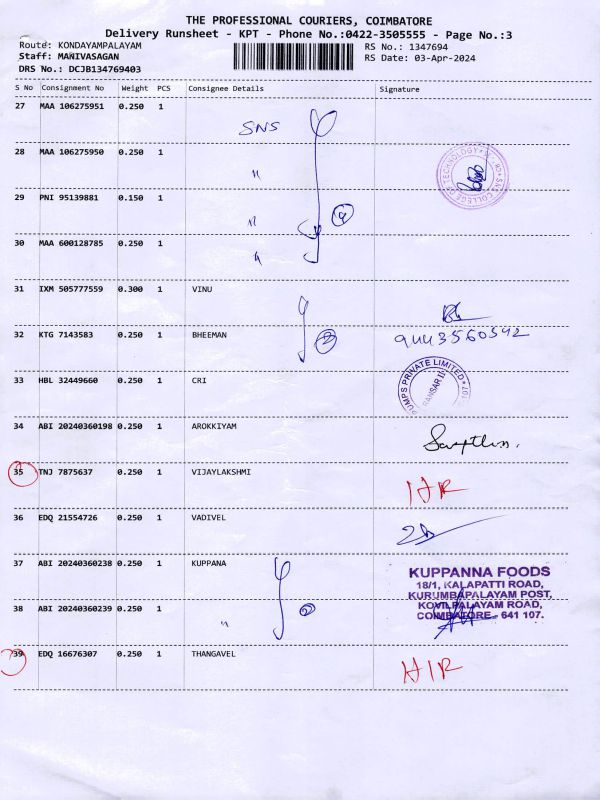 THE PROFESSIONAL COURIERS, COIMBATORE
Delivery Runsheet - KPT - Phone No.:0422-3505555 - Page No.:3
Route: KONDAYAMPALAYAM
RS No.: 1347694
Staff: MANIVASAGAN
RS Date: 03-Apr-2024
DRS No.: DCJB134769403
S No Consignment No Weight PCS Consignee Details Signature
27 MAA 106275951 0.250 1 SNS
28 MAA 106275950 0.250 1 "
SNS COLLEGE OF TECHNOLOGY
29 PNI 95139881 0.150 1 "
4
30 MAA 600128785 0.250 1 "
31 IXM 505777559 0.300 1 VINU
32 KTG 7143583 0.250 1 BHEEMAN 9443560592
2
33 HBL 32449660 0.250 1 CRI
PUMPS PRIVATE LIMITED
34 ABI 20240360198 0.250 1 AROKKIYAM
35 TNJ 7875637 0.250 1 VIJAYLAKSHMI HR
36 EDQ 21554726 0.250 1 VADIVEL
37 ABI 20240360238 0.250 1 KUPPANA
KUPPANNA FOODS
18/1, KALAPATTI ROAD,
KURUMBAPALAYAM POST,
38 ABI 20240360239 0.250 1 "
2
KOVILPALAYAM ROAD,
COIMBATORE - 641 107.
39 EDQ 16676307 0.250 1 THANGAVEL HR